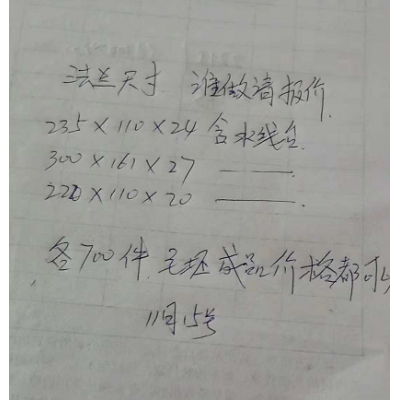 法兰尺寸 谁做请报价.
235×110×24 含水线台.
300×161×27 ———.
220×110×20 ———.
各700件.毛坯成品价格都可以
11月15号